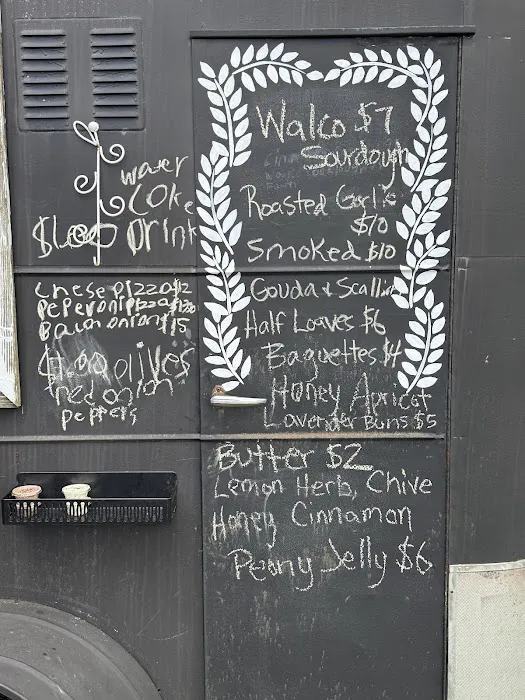 water
Coke
$1.00 Drink
Chese pizza $12
Peperoni pizza $13
Bacon onion $15
$1.00 olives
Red onion
peppers
Walco $7
Sourdough
Roasted Garlic
$10
Smoked $10
Gouda & Scallion
Half Loaves $6
Baguettes $4
Honey Apricot
Lavender Buns $5
Butter $2
Lemon Herb, Chive
Honey Cinnamon
Peony Jelly $6